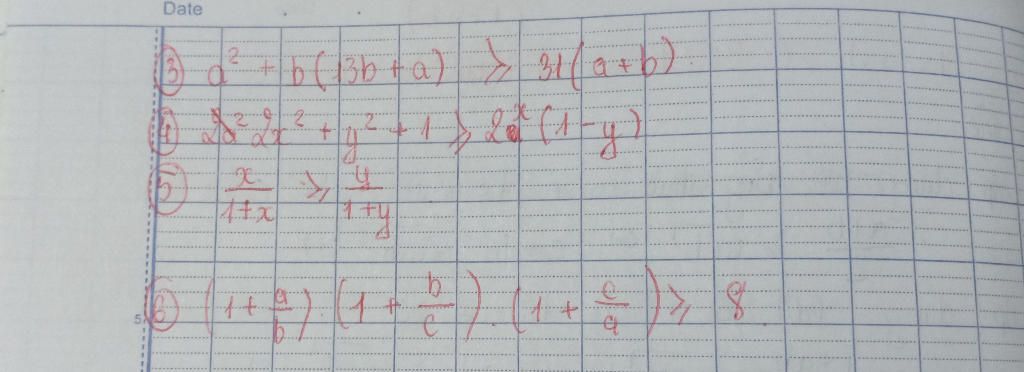 Date
③ a² + b(13b + a) ⩾ 31(a + b)
④ 2x² + y² + 1 ⩾ 2x(1 - y)
⑤ x/(1+x) ⩾ y/(1+y)
5
⑥ (1 + a/b) . (1 + b/c) . (1 + c/a) ⩾ 8